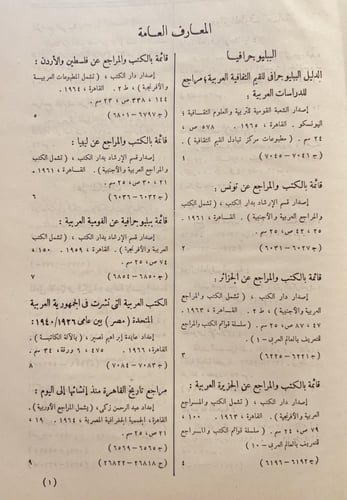 المعارف العامة
الببليوجرافيا
الدليل الببليوجرافى للقيم الثقافية العربية؛ مراجع
للدراسات العربية :
إصدار الشعبة القومية للتربية والعلوم الثقافية ؛
اليونسكو . القاهرة ، ١٩٦٥ . ٥٧٨ ص ،
٢٤ سم . ( مطبوعات مركز تبادل القيم الثقافية ) .
( ج ٧٠٤١ – ٧٠٤٥ ) ١
قائمة بالكتب والمراجع عن تونس :
إصدار قسم الإرشاد بدار الكتب ، ( تشمل الكتب
والمراجع العربية والأجنبية ) . القاهرة ، ١٩٦١ .
٢٥ ، ٤٢ ص ، ٢٥ سم .
( ج ٦٠٢٧ – ٦٠٣١ ) ٢
قائمة بالكتب والمراجع عن الجزائر :
إصدار دار الكتب ، ( تشمل الكتب والمراجع
العربية والأجنبية ) ، ط ٢ . القاهرة ، ١٩٦٣ .
٤٧ ، ٨٧ ص ، ٢٥ سم . ( سلسلة قوائم الكتب والمراجع
للتعريف بالعالم العربى – ١ )
( ج ٦٢٢١ – ٦٢٢٥ ) ٣
قائمة بالكتب والمراجع عن الجزيرة العربية :
إصدار دار الكتب ، ( تشمل المراجع العربية
والأفرنجية ) . القاهرة ، ١٩٦٣ . ١٠٠ ،
٧٩ ص ، ٢٤ سم . ( سلسلة قوائم الكتب والمراجع
للتعريف بالعالم العربى – ١٠ )
( ج ٦١٩٢ – ٦١٩٦ ) ٤
قائمة بالكتب والمراجع عن فلسطين والأردن :
إصدار دار الكتب ، ( تشمل المطبوعات العربية
والأفرنجية ) ، ط ٢ . القاهرة ، ١٩٦٤ .
١٤٤ ، ٣٣٨ ص ، ٢٣ سم .
( ج ٦٧٩٧ – ٦٨٠١ ) ٥
قائمة بالكتب والمراجع عن ليبيا :
إصدار قسم الإرشاد بدار الكتب ، ( تشمل الكتب
والمراجع العربية والأجنبية ) . القاهرة ، ١٩٦١ .
٢١ ، ٣٠ ص ، ٢٥ سم .
( ج ٦٠٣٢ – ٦٠٣٦ ) ٦
قائمة ببليوجرافية عن القومية العربية :
إصدار قسم الإرشاد بدار الكتب ، ( تشمل الكتب
العربية والأفرنجية ) . القاهرة ، ١٩٥٩ . ١٥٠ ،
٧٤ ص ، ٢٥ سم .
( ج ٦٨٥٠ – ٦٨٥٤ ) ٧
الكتب العربية التى نشرت فى الجمهورية العربية
المتحدة ( مصر ) بين عامى ١٩٢٦/ ١٩٤٠ :
إعداد عايدة إبراهيم نصير ، ( بالآلة الكاتبة ) .
القاهرة ، ١٩٦٦ . ٤٧٥ ، ٦ ورقة ، ٣٤ سم .
( ج ٧٠٨٣ – ٧٠٨٤ ) ٨
مراجع تاريخ القاهرة منذ إنشائها إلى اليوم :
إعداد عبد الرحمن زكى ، ( يشمل المراجع الأوربية ) .
القاهرة ، الجمعية الجغرافية المصرية ، ١٩٦٤ . ١٩ ،
٢١ ص ، ٢٥ سم .
( ج ٦٥٦٥ – ٦٥٦٩ )
( ح ٢٦٨١٨ – ٢٦٨٢٢ ) ٩
( ١ )